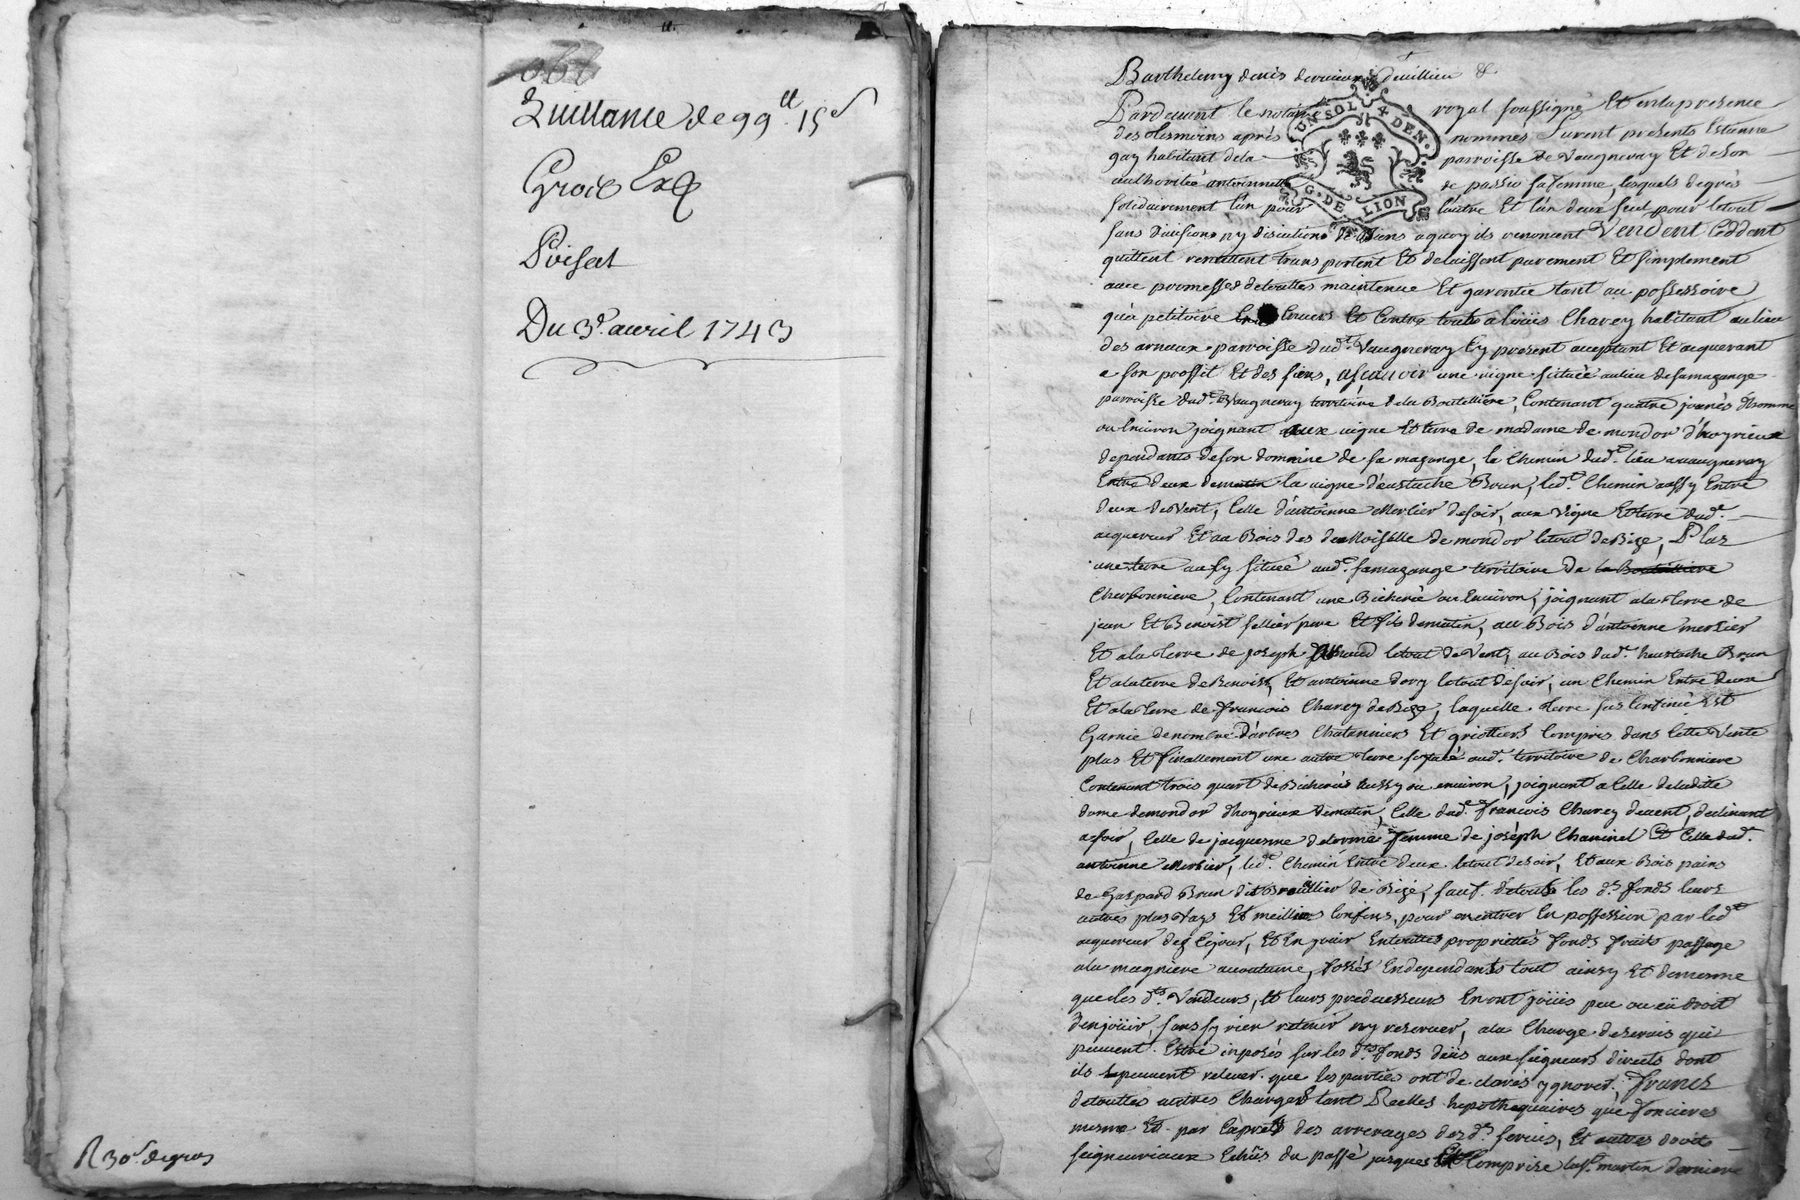 Quittance de 99ᵗᵗ 15ˢ
Groie Exp
Poisat
Du 3ᵉ. avril 1743
R 30ˢ de gros
Barthelemy denis devillieu &
Pardevant le notaire royal soussigné Et en la presence
des tesmoins après nommés furent présents Estienne
gay habitant de la parroisse de Vaugneray Et de son
authorité antoinnette de passio sa femme, lesquels de grés
solidairement l'un pour l'autre Et l'un deux seul pour le tout
sans Division ny discution de biens a quoy ils renoncent Vendent Ceddent
quittent remettent transportent Et delaissent purement Et simplement
avec promesses de touttes maintenue Et garentie tant au possessoire
qu'a petitoire Envers Et Contre touts a Loüis Charey habitant au lieu
des arnaux parroisse dudᵗ. Vaugneray Cy present acceptant Et acquerant
a son proffit Et des siens, ascavoir une vigne située au lieu de samazange
parroisse dudᵗ. Vaugneray territoire de la Boutelliere, Contenant quatre journés d'homme
ou Environ joignant aux vigne Et terre de madame de mondor d'hoyrieux
dependants de son domaine de samazange, le Chemin dudᵗ. lieu a vaugneray
Entre deux de matin la vigne d'eustache Brun, ledᵗ. Chemin aussy Entre
deux de Vent, Celle d'antoinne Mercier de soir, aux Vigne Et terre dudᵗ.
acquereur Et au Bois des demoiselle de mondor le tout de Bize, Plus
une terre aussy située audᵗ. samazange territoire de la Boutelliere
Charbonniere, Contenant une Bicherée ou Environ, joignant a la terre de
jean Et Benoist sellier pere Et fils de matin, au Bois d'antoinne mercier
Et a la terre de joseph le tout de Vent, au Bois dudᵗ. heustache Brun
Et a la terre de Benoist, Et antoinne dory le tout de soir, un Chemin Entre deux
Et a la terre de francois Charey de Bize, laquelle terre sus Confinée Est
Garnie de nombre d'arbres Chatenniers Et griottiers Compris dans Cette Vente
plus Et finallement une autre terre scituée audᵗ. territoire de Charbonniere
Contenant trois quart de Bicherée aussy ou environ, joignant a Celle de laditte
dame de mondor d'hoyrieux de matin, Celle dudᵗ. francois Charey de vent, declinant
a soir, Celle de jacquemme delorme femme de joséph Chaminel Et Celle dudᵗ.
antoinne Mercier, ledᵗ. Chemin Entre deux le tout de soir, Et aux Bois pains
de Gaspard Brun dit Breullier de Bize, sauf de touts les dˢ. fonds leurs
autres plus vrays Et meillieurs Confins, pour en entrer En possession par ledᵗ
acquereur dez Cejour, Et En jouir En touttes proprietés fonds fruits passage
a la magniere accoutumé, fossés En dependants tout ainsy Et de mesme
que les dᵗˢ. Vendeurs, Et leurs predecesseurs En ont joüis peu ou eü droit
d'en joüir, sans sy rien retenir ny reserver, a la Charge des servis qui
peuvent Estre imposés sur les dᵗˢ fonds deüs aux seigneurs directs dont
ils peuvent relever que les parties ont declarés ygnorer, francs
de touttes autres Charges tant Reelles hypothequaires que foncieres
mesme Et par Exprès des arrerages des dˢ. servis, Et autres droits
seigneuriaux Echüs du passé jusques Et Comprise la Sᵗ. martin derniere
UN SOL 4 DEN.
G. DE LION